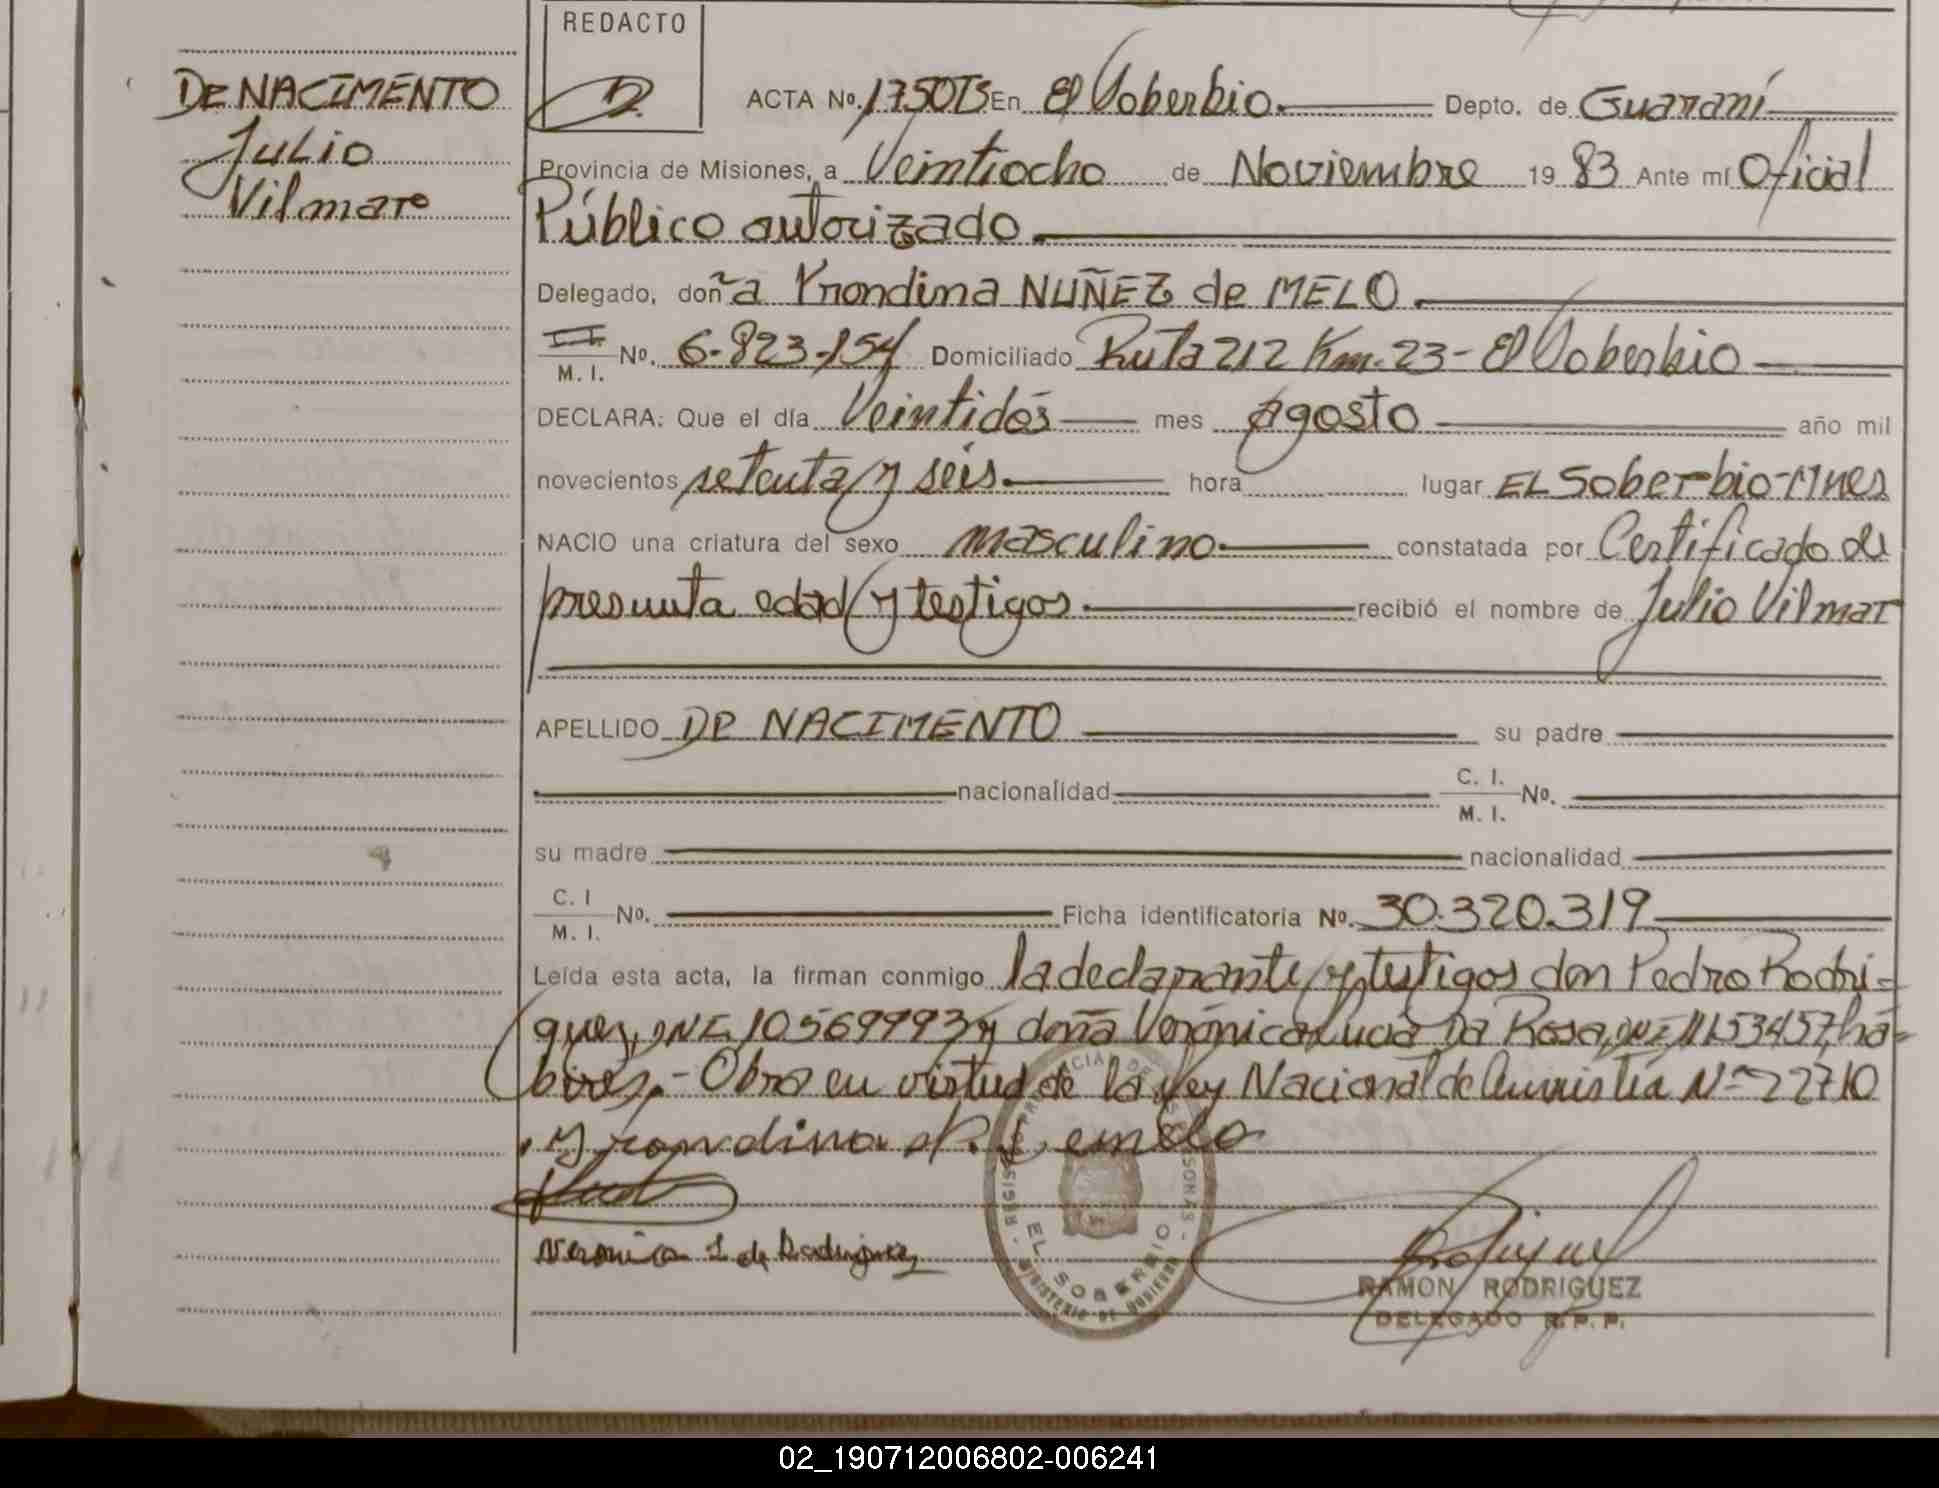 REDACTO
DE NACIMENTO
Julio
Vilmar
ACTA No. 1750TS En El Soberbio. Depto. de Guaraní
Provincia de Misiones, a Veintiocho de Noviembre 19 83 Ante mí Oficial
Público autorizado
Delegado, doña Yrondina NUÑEZ de MELO
M. I. No. 6.823.154 Domiciliado Ruta 212 Km. 23 - El Soberbio
DECLARA: Que el día Veintidós mes Agosto año mil
novecientos setenta y seis hora lugar EL Soberbio-Mnes
NACIO una criatura del sexo masculino constatada por Certificado de
presunta edad y testigos. recibió el nombre de Julio Vilmar
APELLIDO DE NACIMENTO su padre
nacionalidad C. I. M. I. No.
su madre nacionalidad
C. I M. I. No. Ficha identificatoria No. 30.320.319
Leída esta acta, la firman conmigo la declarante y testigos don Pedro Rodri-
guez, DNI 10569993 y doña Verónica Lucía Da Rosa, DNI 11.534.57, há-
biles.- Obra en virtud de la Ley Nacional de Amnistía Nº 22710
Yrondina
Veronica L de Rodriguez
EL SOBERBIO
MINISTERIO DE GOBIERNO
RAMON RODRIGUEZ
DELEGADO R.P.P.
02_190712006802-006241